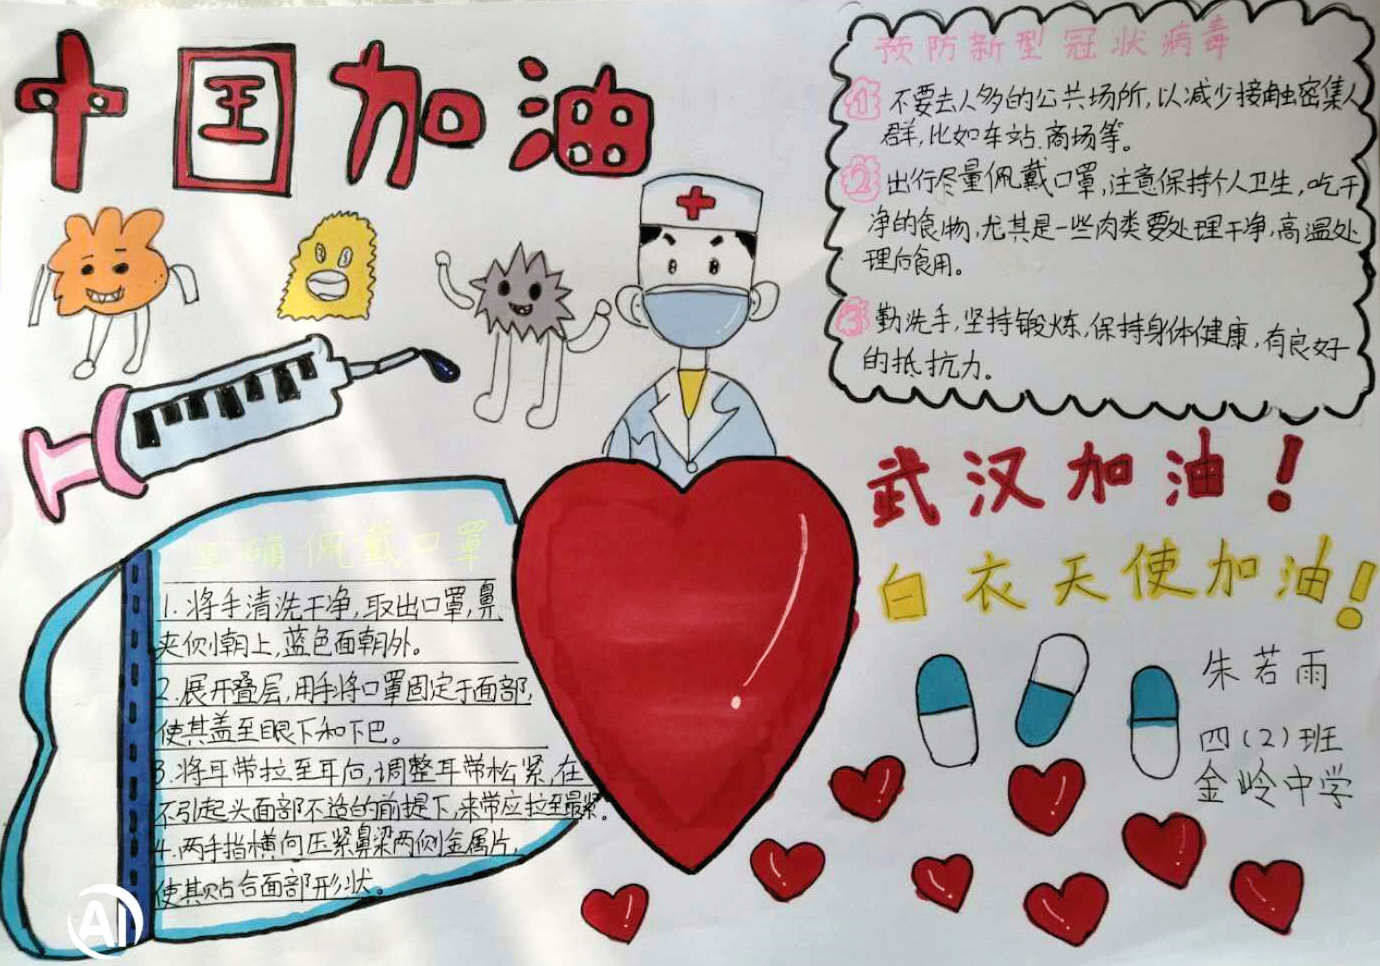 中国加油
预防新型冠状病毒
1 不要去人多的公共场所,以减少接触密集人
群,比如车站、商场等。
2 出行尽量佩戴口罩,注意保持个人卫生,吃干
净的食物,尤其是一些肉类要处理干净,高温处
理后食用。
3 勤洗手,坚持锻炼,保持身体健康,有良好
的抵抗力。
武汉加油!
白衣天使加油!
朱若雨
四(2)班
金岭中学
正确佩戴口罩
1.将手清洗干净,取出口罩,鼻
夹侧朝上,蓝色面朝外。
2.展开叠层,用手将口罩固定于面部,
使其盖至眼下和下巴。
3.将耳带拉至耳后,调整耳带松紧,在
不引起头面部不适的前提下,来带应拉至最紧。
4.两手指横向压紧鼻梁两侧金属片,
使其贴合面部形状。
AI